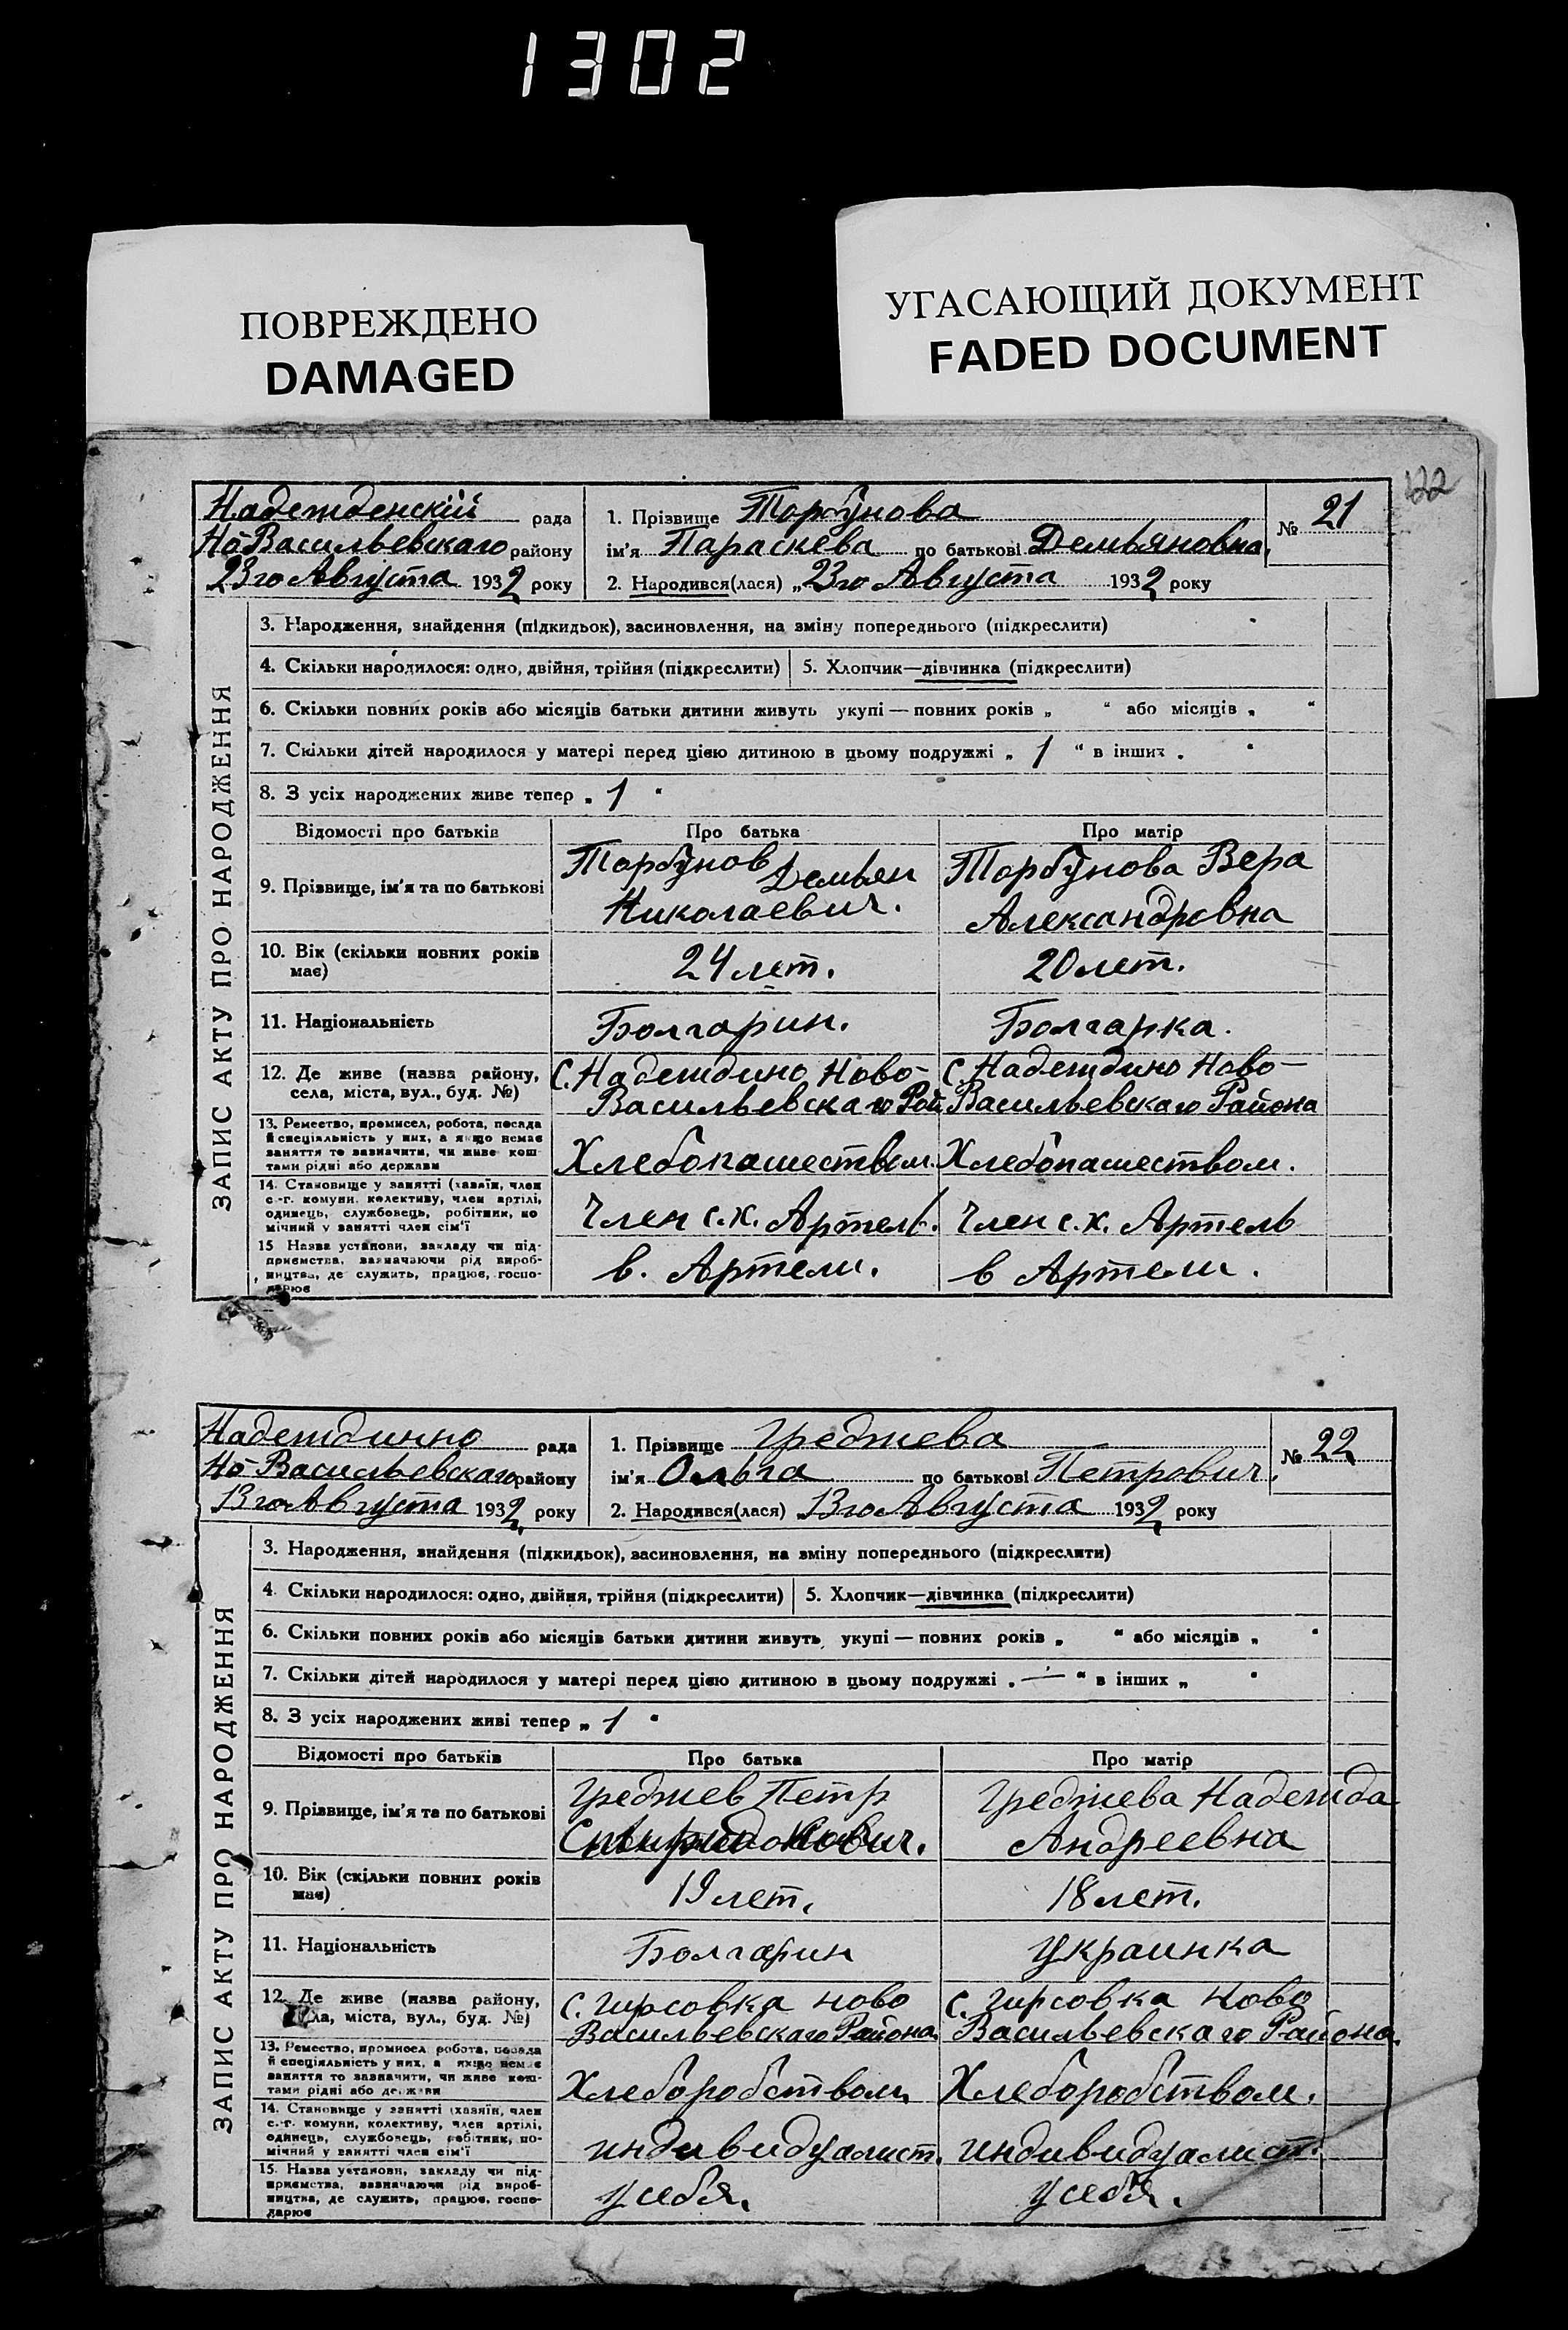 1302
ПОВРЕЖДЕНО
DAMAGED
УГАСАЮЩИЙ ДОКУМЕНТ
FADED DOCUMENT
122
Надежденскій рада
Но-Васильевскаго району
23го Августа 1932 року
1. Прізвище Торбунова
ім'я Параскева по батькові Демьяновна.
2. Народився(лася) „23го Августа 1932 року
№ 21
ЗАПИС АКТУ ПРО НАРОДЖЕННЯ
3. Народження, знайдення (підкидьок), засиновлення, на зміну попереднього (підкреслити)
4. Скільки народилося: одно, двійня, трійня (підкреслити) 5. Хлопчик—дівчинка (підкреслити)
6. Скільки повних років або місяців батьки дитини живуть укупі — повних років „ “ або місяців „ “
7. Скільки дітей народилося у матері перед цією дитиною в цьому подружжі „ 1 “ в інших „ “
8. З усіх народжених живе тепер „ 1 “
Відомості про батьків Про батька Про матір
9. Прізвище, ім'я та по батькові
Торбунов Демьян
Николаевич.
Торбунова Вера
Александровна
10. Вік (скільки повних років
має)
24 лет.
20 лет.
11. Національність
Болгарин.
Болгарка.
12. Де живе (назва району,
села, міста, вул., буд. №)
С. Надеждино Ново-
Васильевскаго Рай
С. Надеждино Ново-
Васильевскаго Района
13. Ремество, промисел, робота, посада
й спеціяльність у них, а якщо немає
заняття то зазначити, чи живе кош-
тами рідні або держави
Хлебопашеством.
Хлебопашеством.
14. Становище у занятті (хазяїн, член
с.-г. комуни, колективу, член артілі,
одинець, службовець, робітник, по-
мічний у занятті член сім'ї
Член с.х. Артель.
Член с.х. Артель
15 Назва установи, закладу чи під-
приємства, зазначаючи рід вироб-
ництва, де служить, працює, госпо-
дарює
в. Артели.
в Артели.
Надеждинно рада
Но-Васильевскаго району
13го Августа 1932 року
1. Прізвище Греджева
ім'я Ольга по батькові Петрович.
2. Народився(лася) „13го Августа 1932 року
№ 22
ЗАПИС АКТУ ПРО НАРОДЖЕННЯ
3. Народження, знайдення (підкидьок), засиновлення, на зміну попереднього (підкреслити)
4. Скільки народилося: одно, двійня, трійня (підкреслити) 5. Хлопчик—дівчинка (підкреслити)
6. Скільки повних років або місяців батьки дитини живуть укупі — повних років „ “ або місяців „ “
7. Скільки дітей народилося у матері перед цією дитиною в цьому подружжі „ — “ в інших „ “
8. З усіх народжених живі тепер „ 1 “
Відомості про батьків Про батька Про матір
9. Прізвище, ім'я та по батькові
Греджев Петр
Греджева Надежда
Андреевна
10. Вік (скільки повних років
має)
19 лет.
18 лет.
11. Національність
Болгарин
Украинка
12. Де живе (назва району,
села, міста, вул., буд. №)
с. Гирсовка Ново
Васильевскаго Района.
с. Гирсовка Ново
Васильевскаго Района.
13. Ремество, промисел робота, посада
й спеціяльність у них, а якщо немає
заняття то зазначити, чи живе кош-
тами рідні або держави
Хлеборобством
Хлеборобством.
14. Становище у занятті (хазяїн, член
с.-г. комуни, колективу, член артілі,
одинець, службовець, робітник, по-
мічний у занятті член сім'ї
индивидуалист.
индивидуалист.
15. Назва установи, закладу чи під-
приємства, зазначаючи рід вироб-
ництва, де служить, працює, госпо-
дарює
у себя.
у себя.